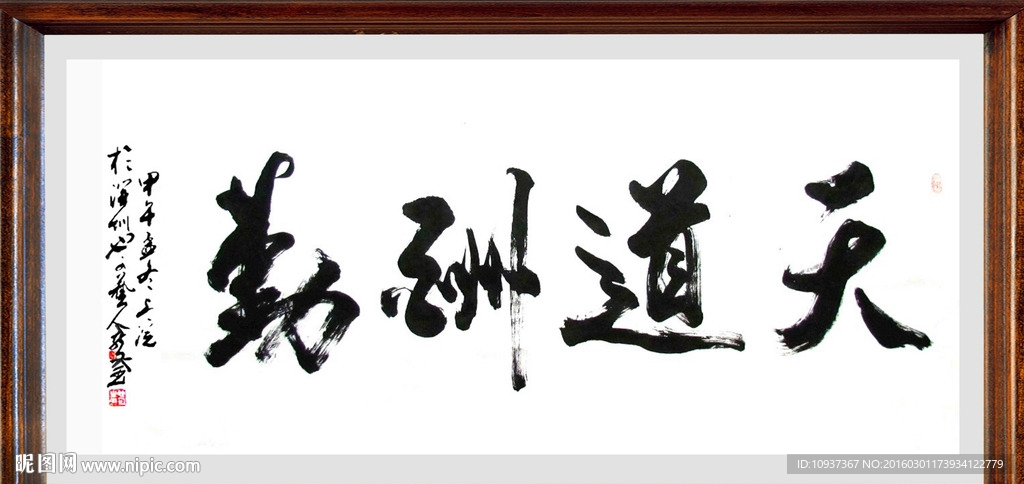 天道酬勤
甲午孟冬上浣
於深圳
昵图网 www.nipic.com
ID:10937367 NO:20160301173934122779